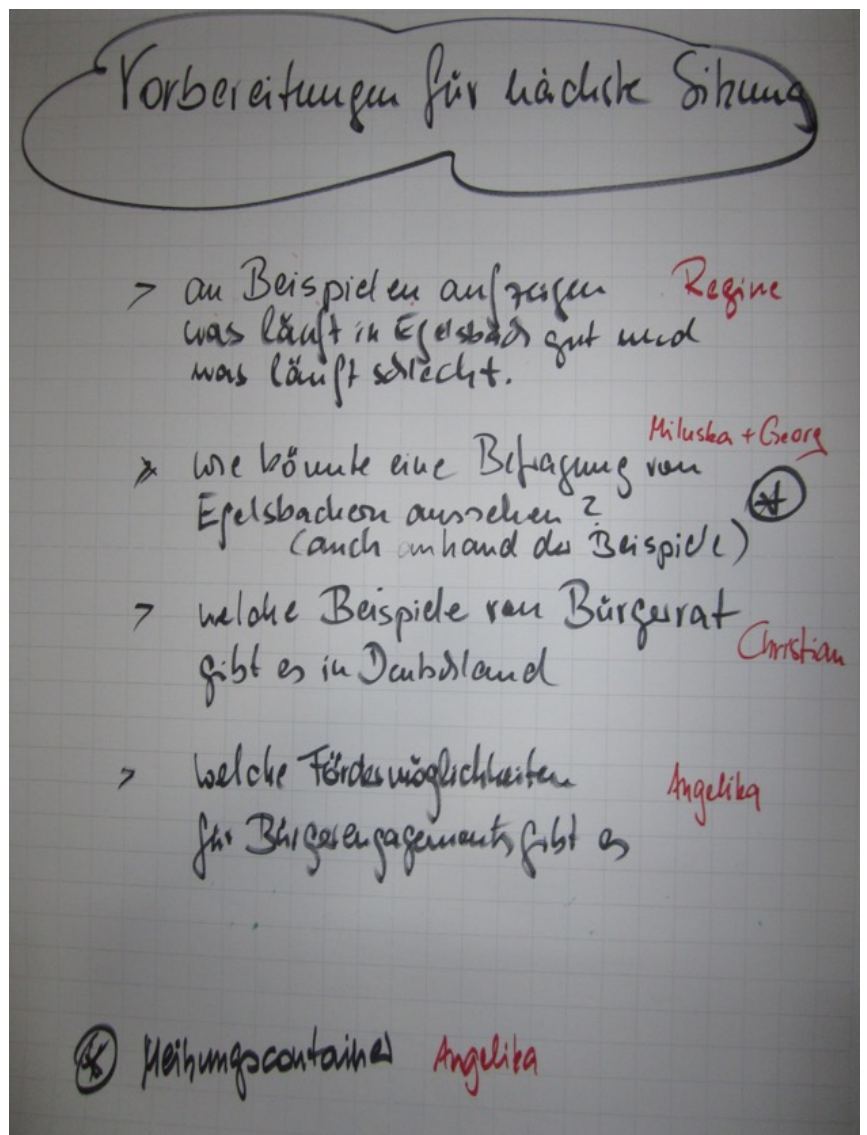 Vorbereitungen für nächste Sitzung
> an Beispielen aufzeigen Regine
was läuft in Egelsbach gut und
was läuft schlecht.
Miluska + Georg
> wie könnte eine Befragung von
Egelsbachern aussehen ?
(auch anhand der Beispiele)
> welche Beispiele von Bürgerrat
Christian
gibt es in Deutschland
> welche Fördermöglichkeiten
Angelika
für Bürgerengagements gibt es
* Meinungscontainer Angelika